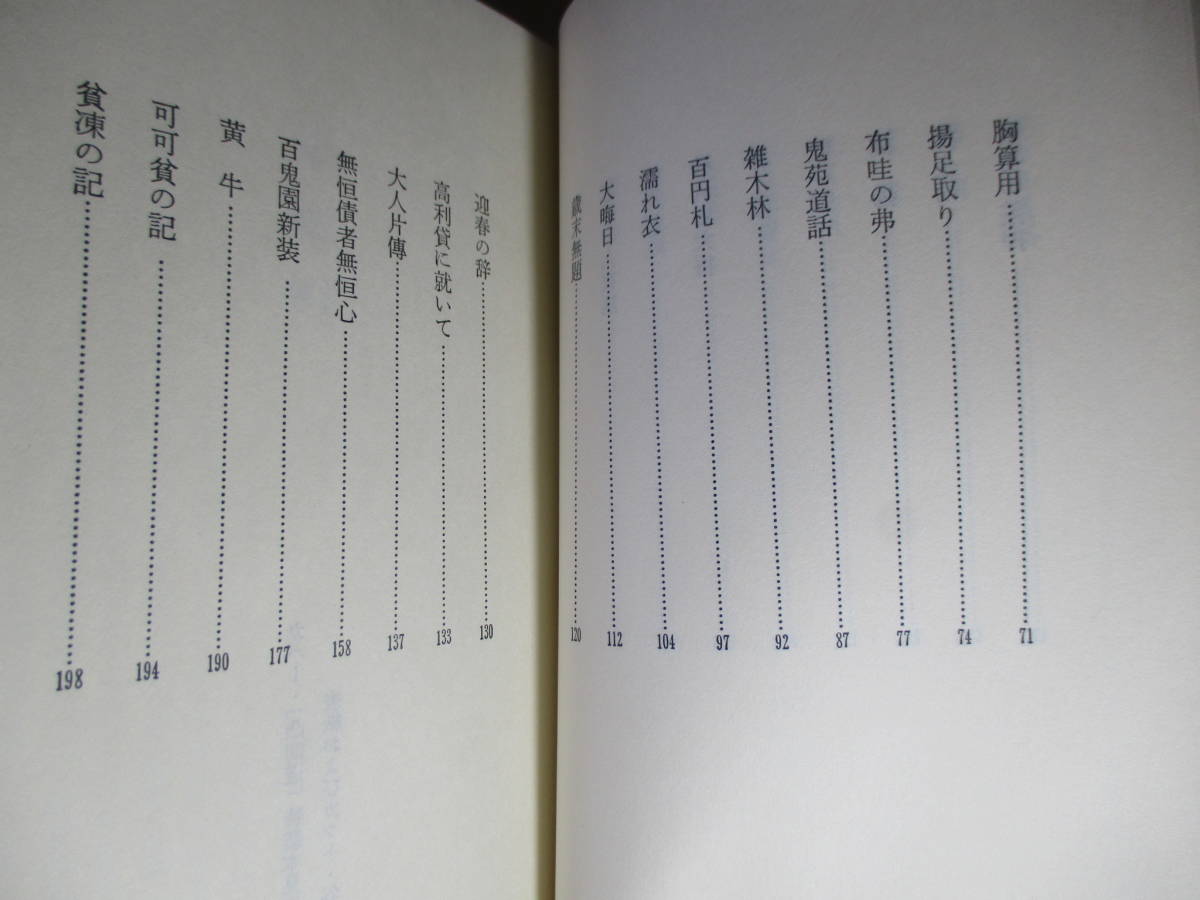 胸算用……………………71
揚足取り……………………74
布哇の弗……………………77
鬼苑道話……………………87
雑木林……………………92
百円札……………………97
濡れ衣……………………104
大晦日……………………112
歳末無題……………………120
迎春の辞……………………130
高利貸に就いて……………………133
大人片傳……………………137
無恒債者無恒心……………………158
百鬼園新装……………………177
黄牛……………………190
可可貧の記……………………194
貧凍の記……………………198